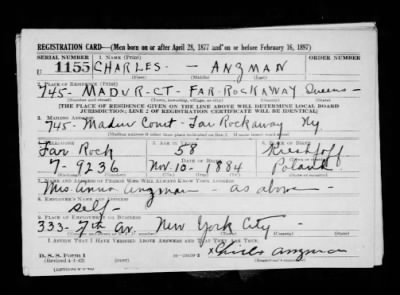 REGISTRATION CARD—(Men born on or after April 28, 1877 and on or before February 16, 1897)
SERIAL NUMBER 1. NAME (Print) ORDER NUMBER
U 1155 CHARLES — ANZMAN
(First) (Middle) (Last)
2. PLACE OF RESIDENCE (Print)
745- MADUR-CT- FAR-ROCKAWAY Queens-
(Number and street) (Town, township, village, or city) (County) (State)
[THE PLACE OF RESIDENCE GIVEN ON THE LINE ABOVE WILL DETERMINE LOCAL BOARD
JURISDICTION; LINE 2 OF REGISTRATION CERTIFICATE WILL BE IDENTICAL]
3. MAILING ADDRESS
745- Madur Court- Far Rockaway Ny
[Mailing address if other than place indicated on line 2. If same insert word same]
4. TELEPHONE 5. AGE IN YEARS 6. PLACE OF BIRTH
Far Rock 58
DATE OF BIRTH
7-9236 Nov. 10- 1884 Poland
7. NAME AND ADDRESS OF PERSON WHO WILL ALWAYS KNOW YOUR ADDRESS
Mrs. Anna Anzman — as above —
8. EMPLOYER'S NAME AND ADDRESS
Self-
9. PLACE OF EMPLOYMENT OR BUSINESS
333- 7th Av. New York City -
(Number and street or R. F. D. number) (Town) (County) (State)
I AFFIRM THAT I HAVE VERIFIED ABOVE ANSWERS AND THAT THEY ARE TRUE.
D. S. S. Form 1
(Revised 4-1-42) x Charles Anzman